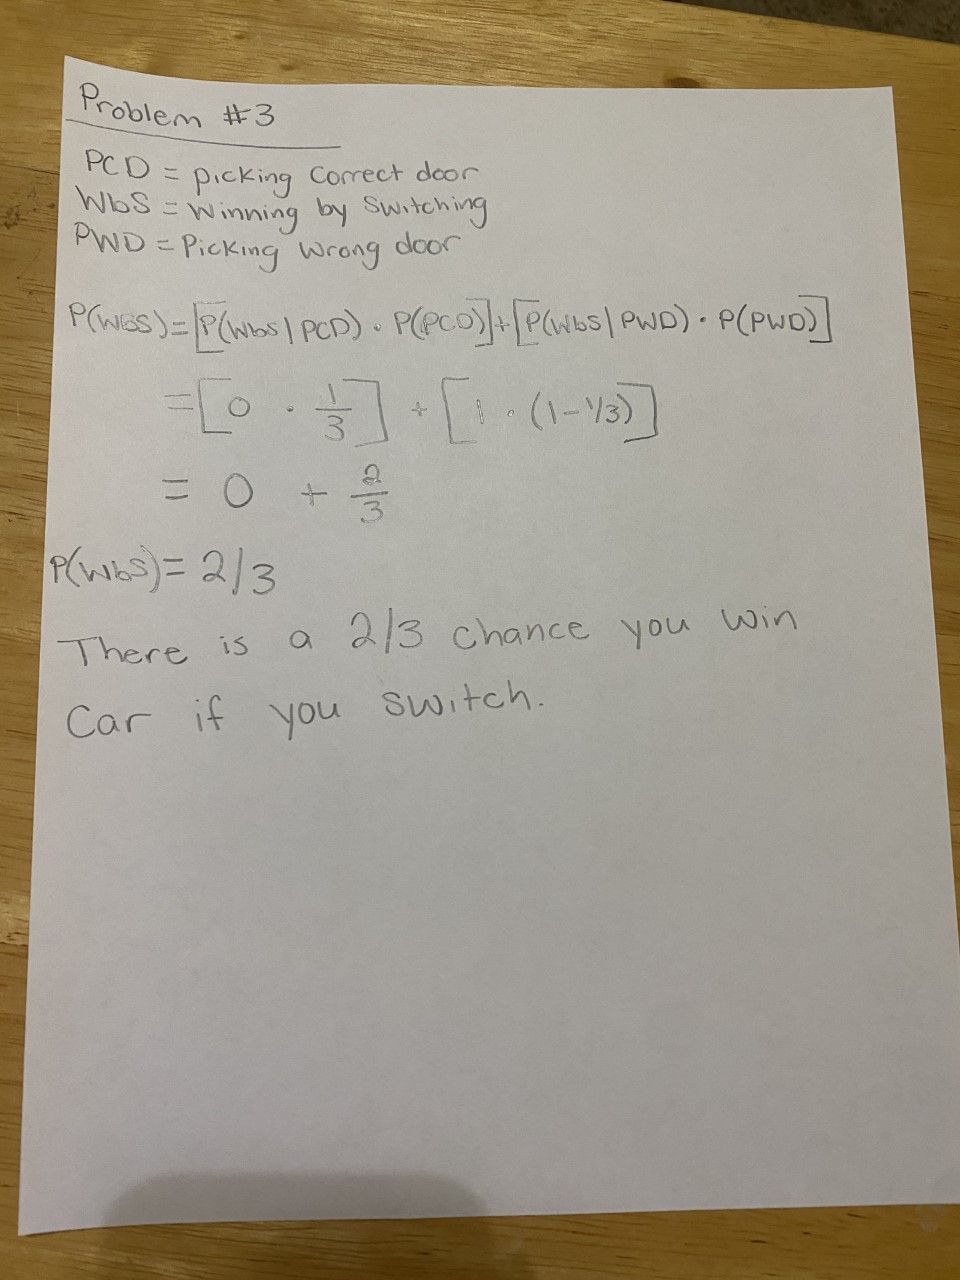 Problem #3
PCD = picking correct door
WbS = Winning by Switching
PWD = Picking Wrong door
P(WbS) = [P(WbS | PCD) · P(PCD)] + [P(WbS | PWD) · P(PWD)]
= [0 · 1/3] + [1 · (1-1/3)]
= 0 + 2/3
P(WbS) = 2/3
There is a 2/3 chance you win
Car if you switch.